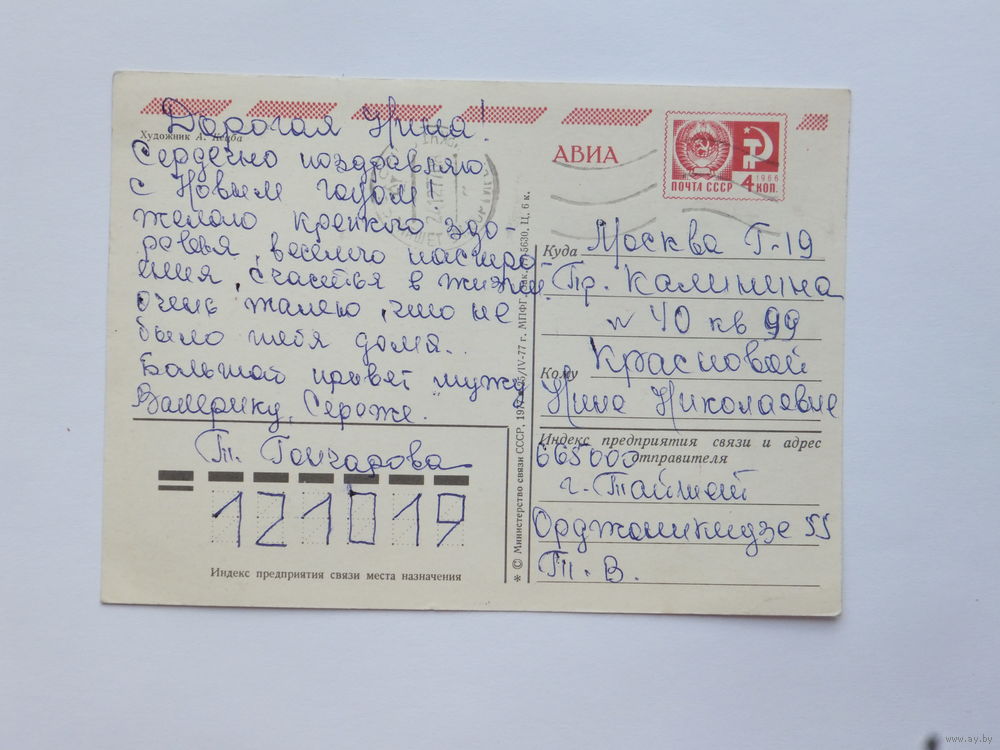 Дорогая Нина!
Художник А.
Сердечно поздравляю
с Новым годом!
желаю крепкого здо-
ровья, веселого настрое-
ния, счастья в жизни.
очень жалею, что не
было тебя дома..
Большой привет мужу,
Валерику, Сереже.
Т. Гончарова
121019
Индекс предприятия связи места назначения
* © Министерство связи СССР, 1977 /IV-77 г. МПФГ. 5630. Ц. 6 к.
АВИА
ПОЧТА СССР 4 КОП. 1966
Куда Москва Г-19
Пр. Калинина
40 кв 99
Кому Красновой
Нине Николаевне
Индекс предприятия связи и адрес
665000 отправителя
г. Тайшет
Орджоникидзе 55
Т. В.
www.ay.by